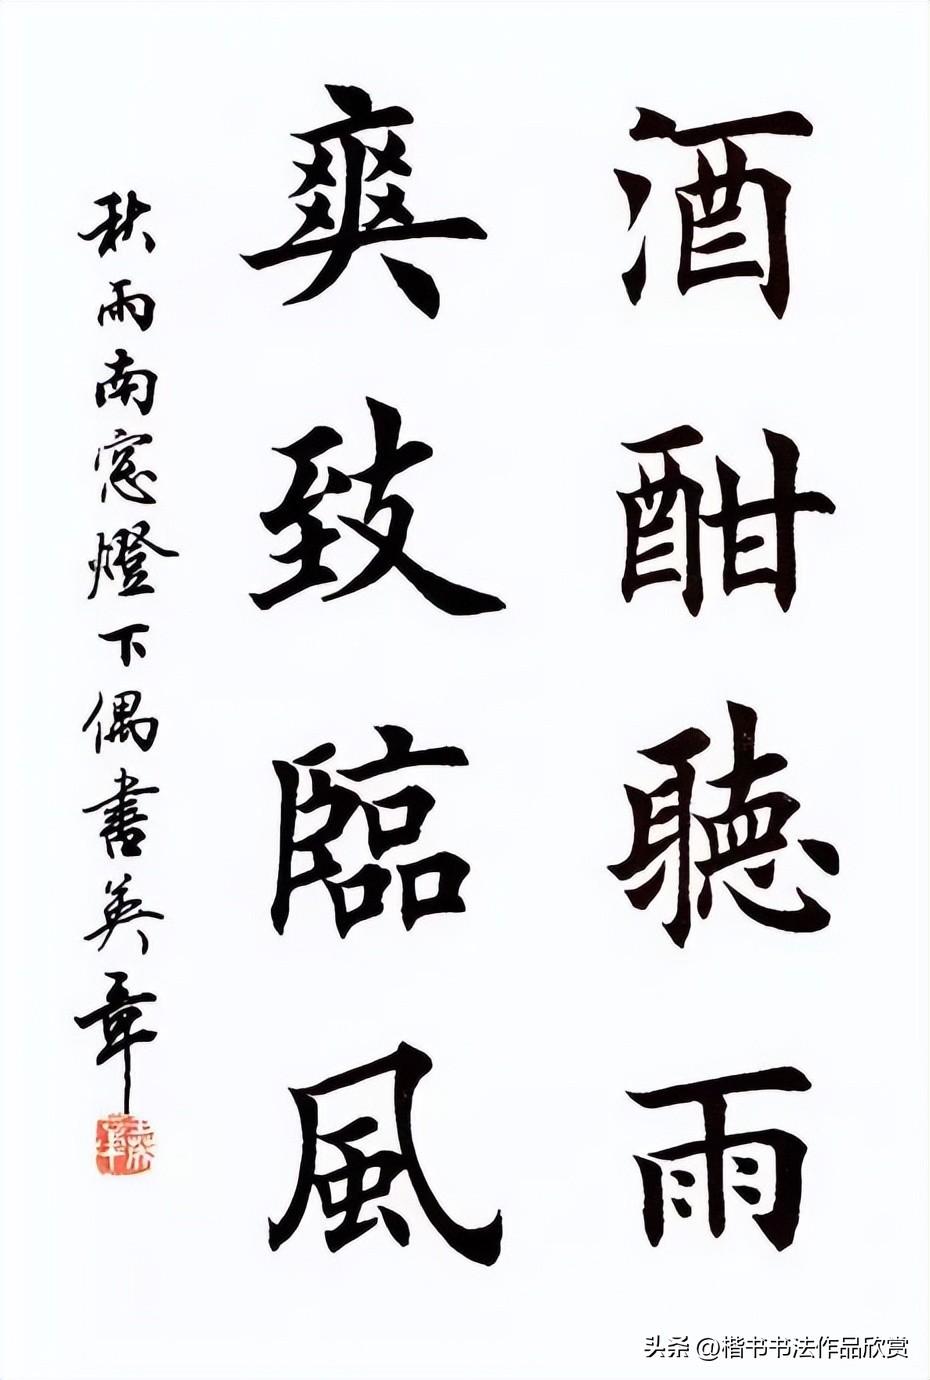 酒酣聽雨
爽致臨風
秋雨南窓燈下偶書英章
头条 @楷书书法作品欣赏